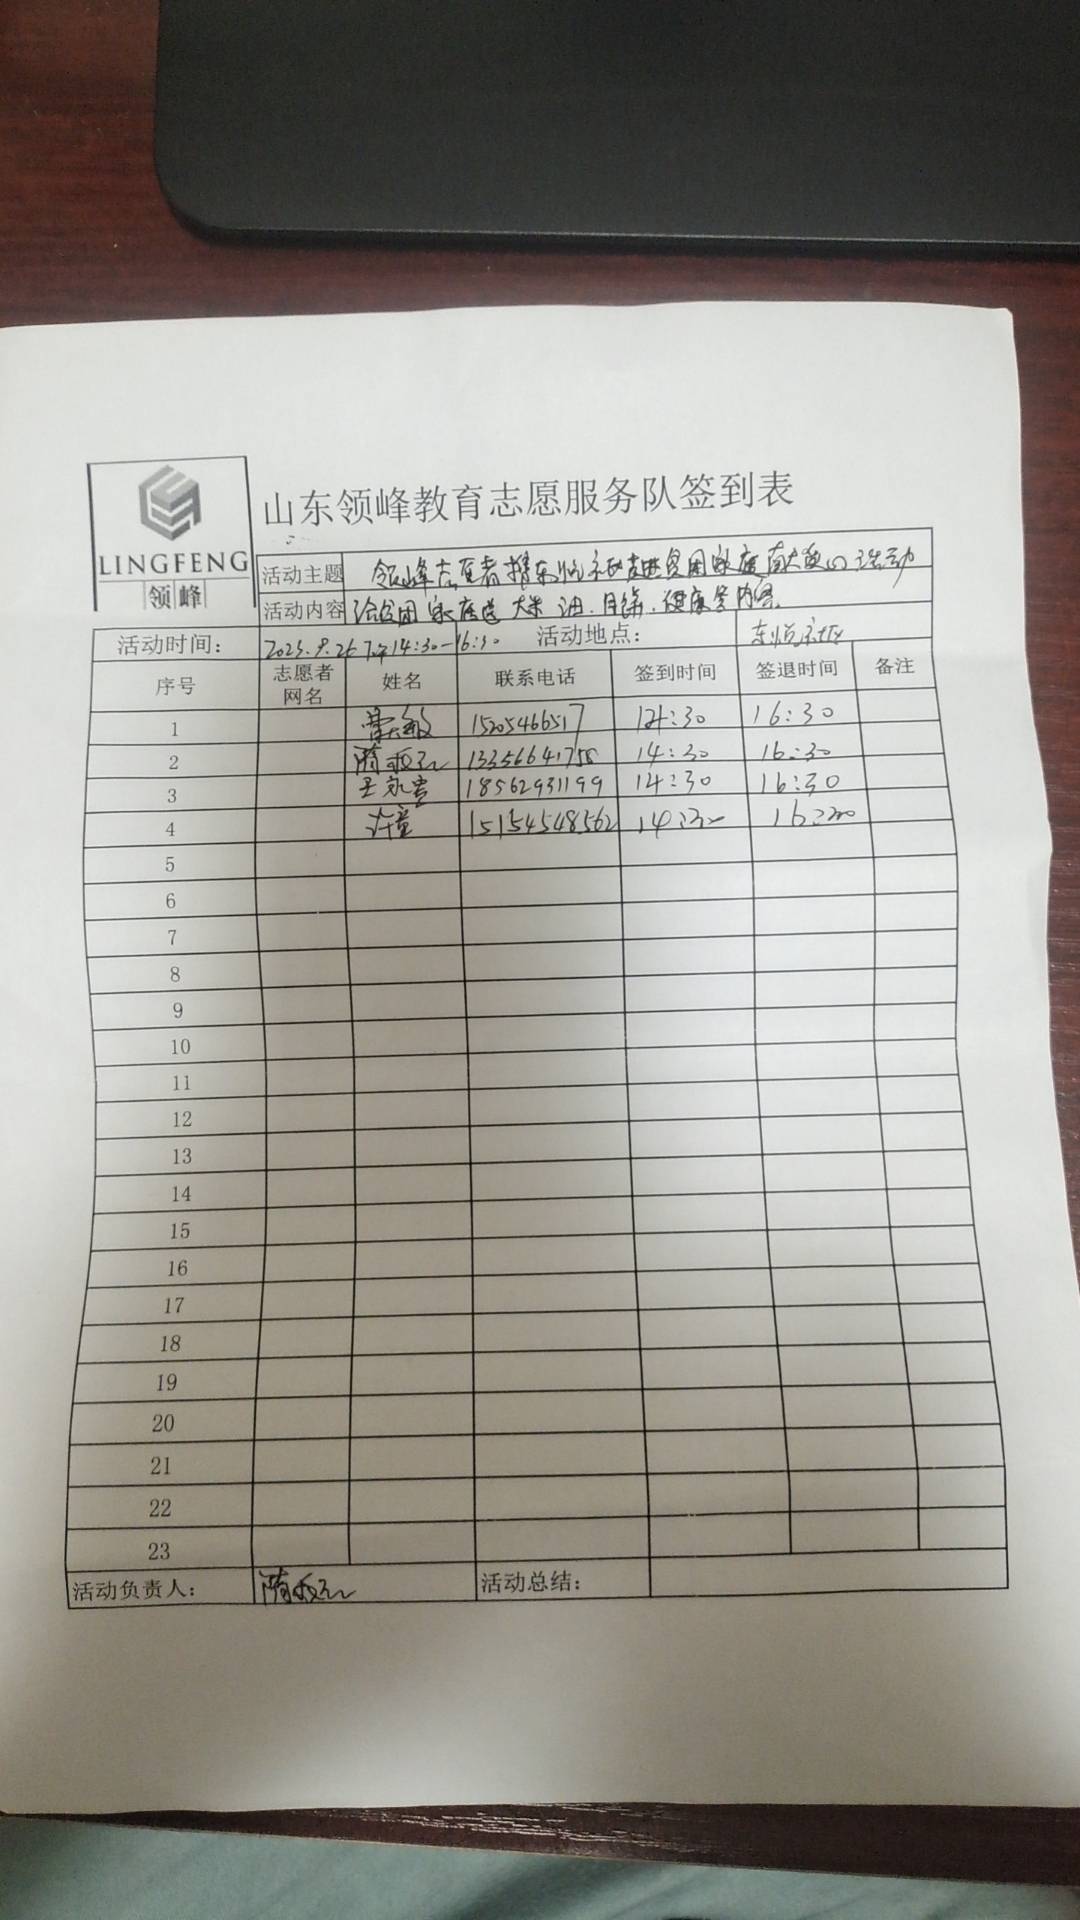 LINGFENG
领峰
山东领峰教育志愿服务队签到表
活动主题 领峰志愿者携东悦社区走进贫困家庭献爱心活动
活动内容 给贫困家庭送大米、油、月饼、健康等内容。
活动时间： 2023.9.26 下午14:30—16:30 活动地点： 东悦社区
序号 志愿者网名 姓名 联系电话 签到时间 签退时间 备注
1 敏 15205466517 14:30 16:30
2 隋 13356641758 14:30 16:30
3 王家贵 18562931199 14:30 16:30
4 许童 15154548562 14:30 16:30
5
6
7
8
9
10
11
12
13
14
15
16
17
18
19
20
21
22
23
活动负责人： 隋 活动总结：